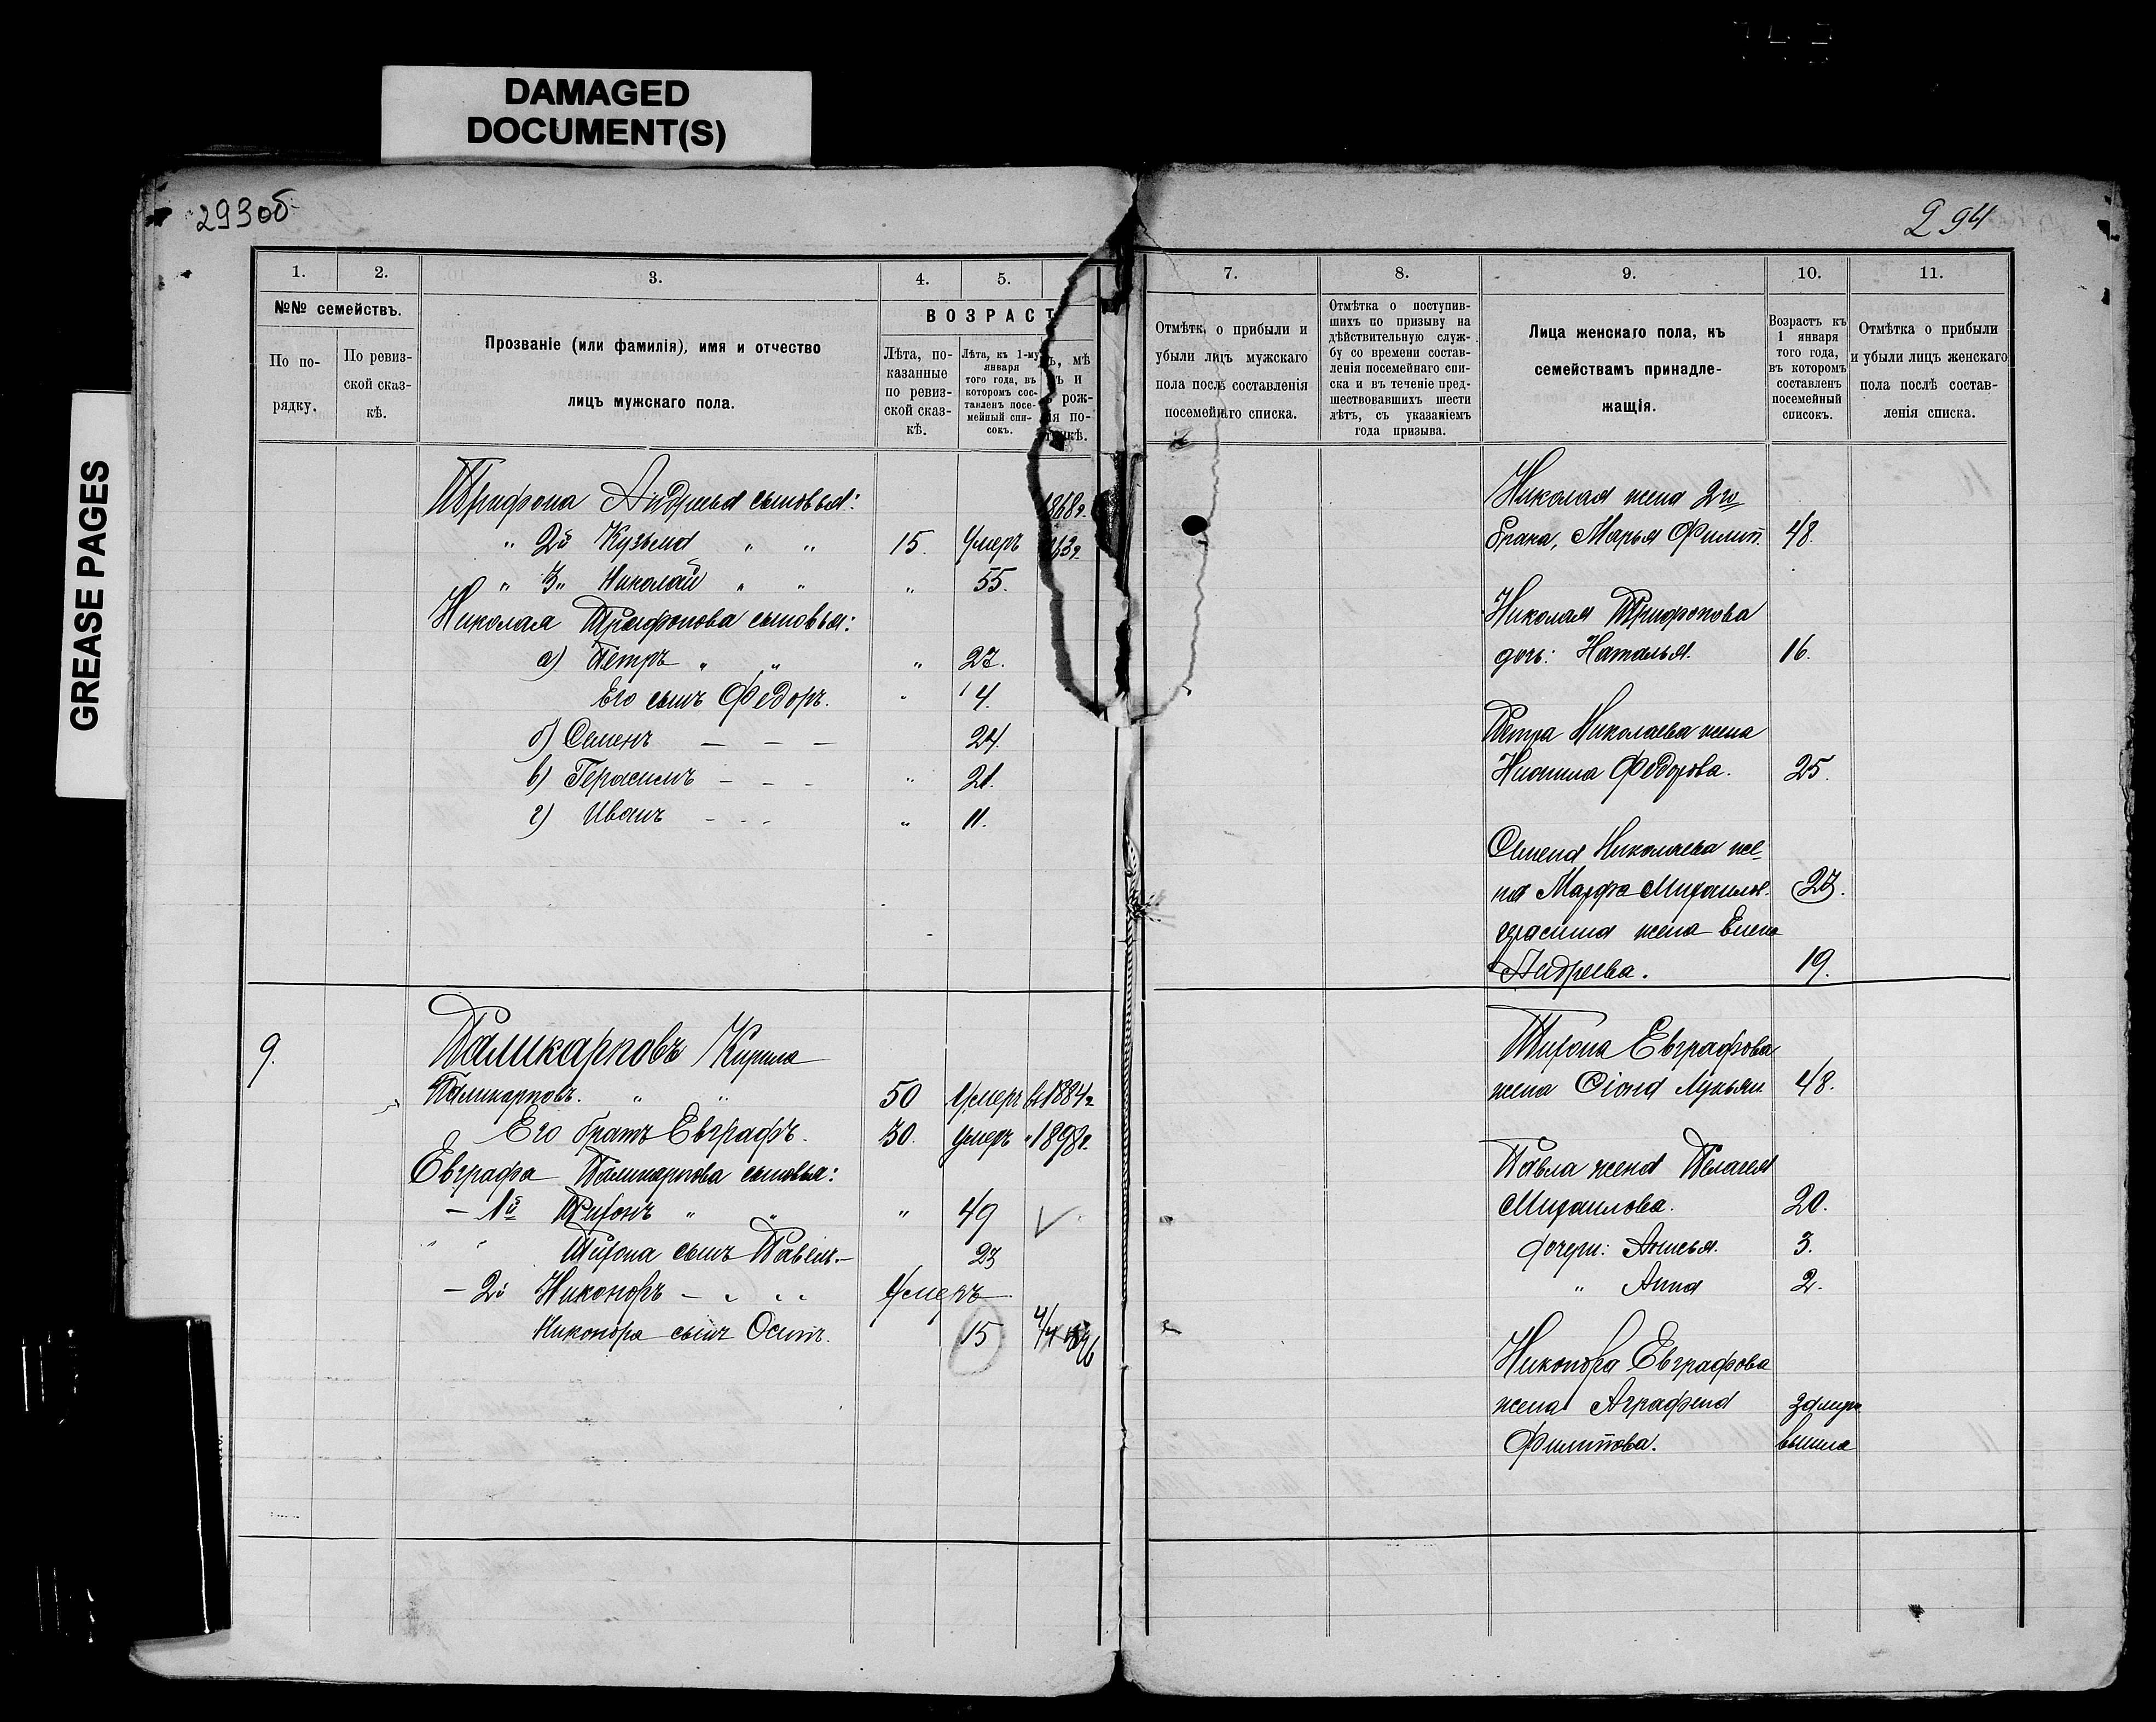 DAMAGED
DOCUMENT(S)
GREASE PAGES
293об
1.
2.
3.
4.
5.
№№ семействъ.
По по-
рядку.
По ревиз-
ской сказ-
кѣ.
Прозваніе (или фамилія), имя и отчество
лицъ мужскаго пола.
ВОЗРАСТ
Лѣта, по-
казанные
по ревиз-
ской сказ-
кѣ.
Лѣта, къ 1-му
января
того года, въ
которомъ сос-
тавленъ посе-
мейный спи-
сокъ.
ъ, мѣ
ъ и
рож-
ія по-
кѣ.
Трифона Андреева сыновья:
1868г.
" 2й Кузьма " " 15. Умеръ
" 3" Николай " " " 55.
Николая Трифонова сыновья:
а) Петръ " " " 27.
Его сынъ Федоръ. " 4.
б) Семенъ — — — 24.
в) Герасимъ — — - " 21.
г) Иванъ - - - " 11.
9.
Паликарповъ Кирила
Паликарповъ. " " 50 Умеръ въ 1884г.
Его братъ Евграфъ. 30. Умеръ " 1898г.
Евграфа Паликарпова сыновья:
— 1й Тихонъ " " " 49
Тихона сынъ Павелъ.— 23
— 2й Никоноръ — " " " Умеръ
Никонора сынъ Осипъ. 15
294
7.
8.
9.
10.
11.
Отмѣтк, о прибыли и
убыли лицъ мужскаго
пола послѣ составленія
посемейнаго списка.
Отмѣтка о поступив-
шихъ по призыву на
дѣйствительную служ-
бу со времени состав-
ленія посемейнаго спи-
ска и въ теченіе пред-
шествовавшихъ шести
лѣтъ, съ указаніемъ
года призыва.
Лица женскаго пола, къ
семействамъ принадле-
жащія.
Возрастъ къ
1 января
того года,
въ которомъ
составленъ
посемейный
списокъ.
Отмѣтка о прибыли
и убыли лицъ женскаго
пола послѣ состав-
ленія списка.
Николая жена 2го
брака, Марья Филип. 48.
Николая Трифонова
дочь: Наталья. 16.
Петра Николаева жена
Федорова. 25.
Семена Николаева же-
на Марфа Михаилов. 23.
Герасима жена Елена
Андреева. 19.
Тихона Евграфова
жена Лукьян. 48.
Павла жена Пелагея
Михаилова. 20.
дочери: Анисья. 3.
" Анна 2.
Никонора Евграфова
жена Аграфена замужъ
Филипова. вышла